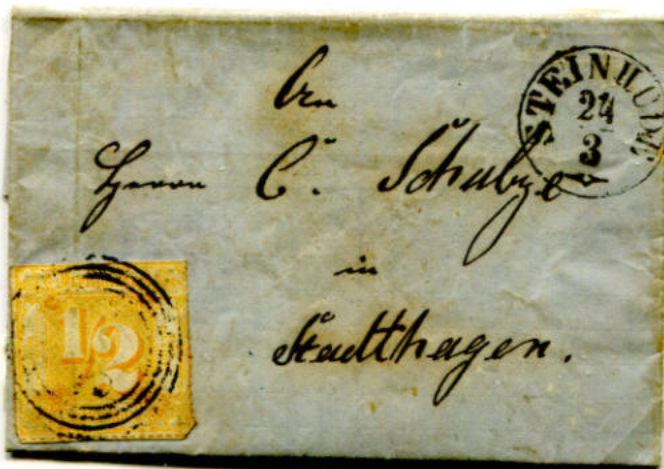 An
STEINHUDE
24
3
Herrn C. Schulze
in
Stadthagen.
1/2